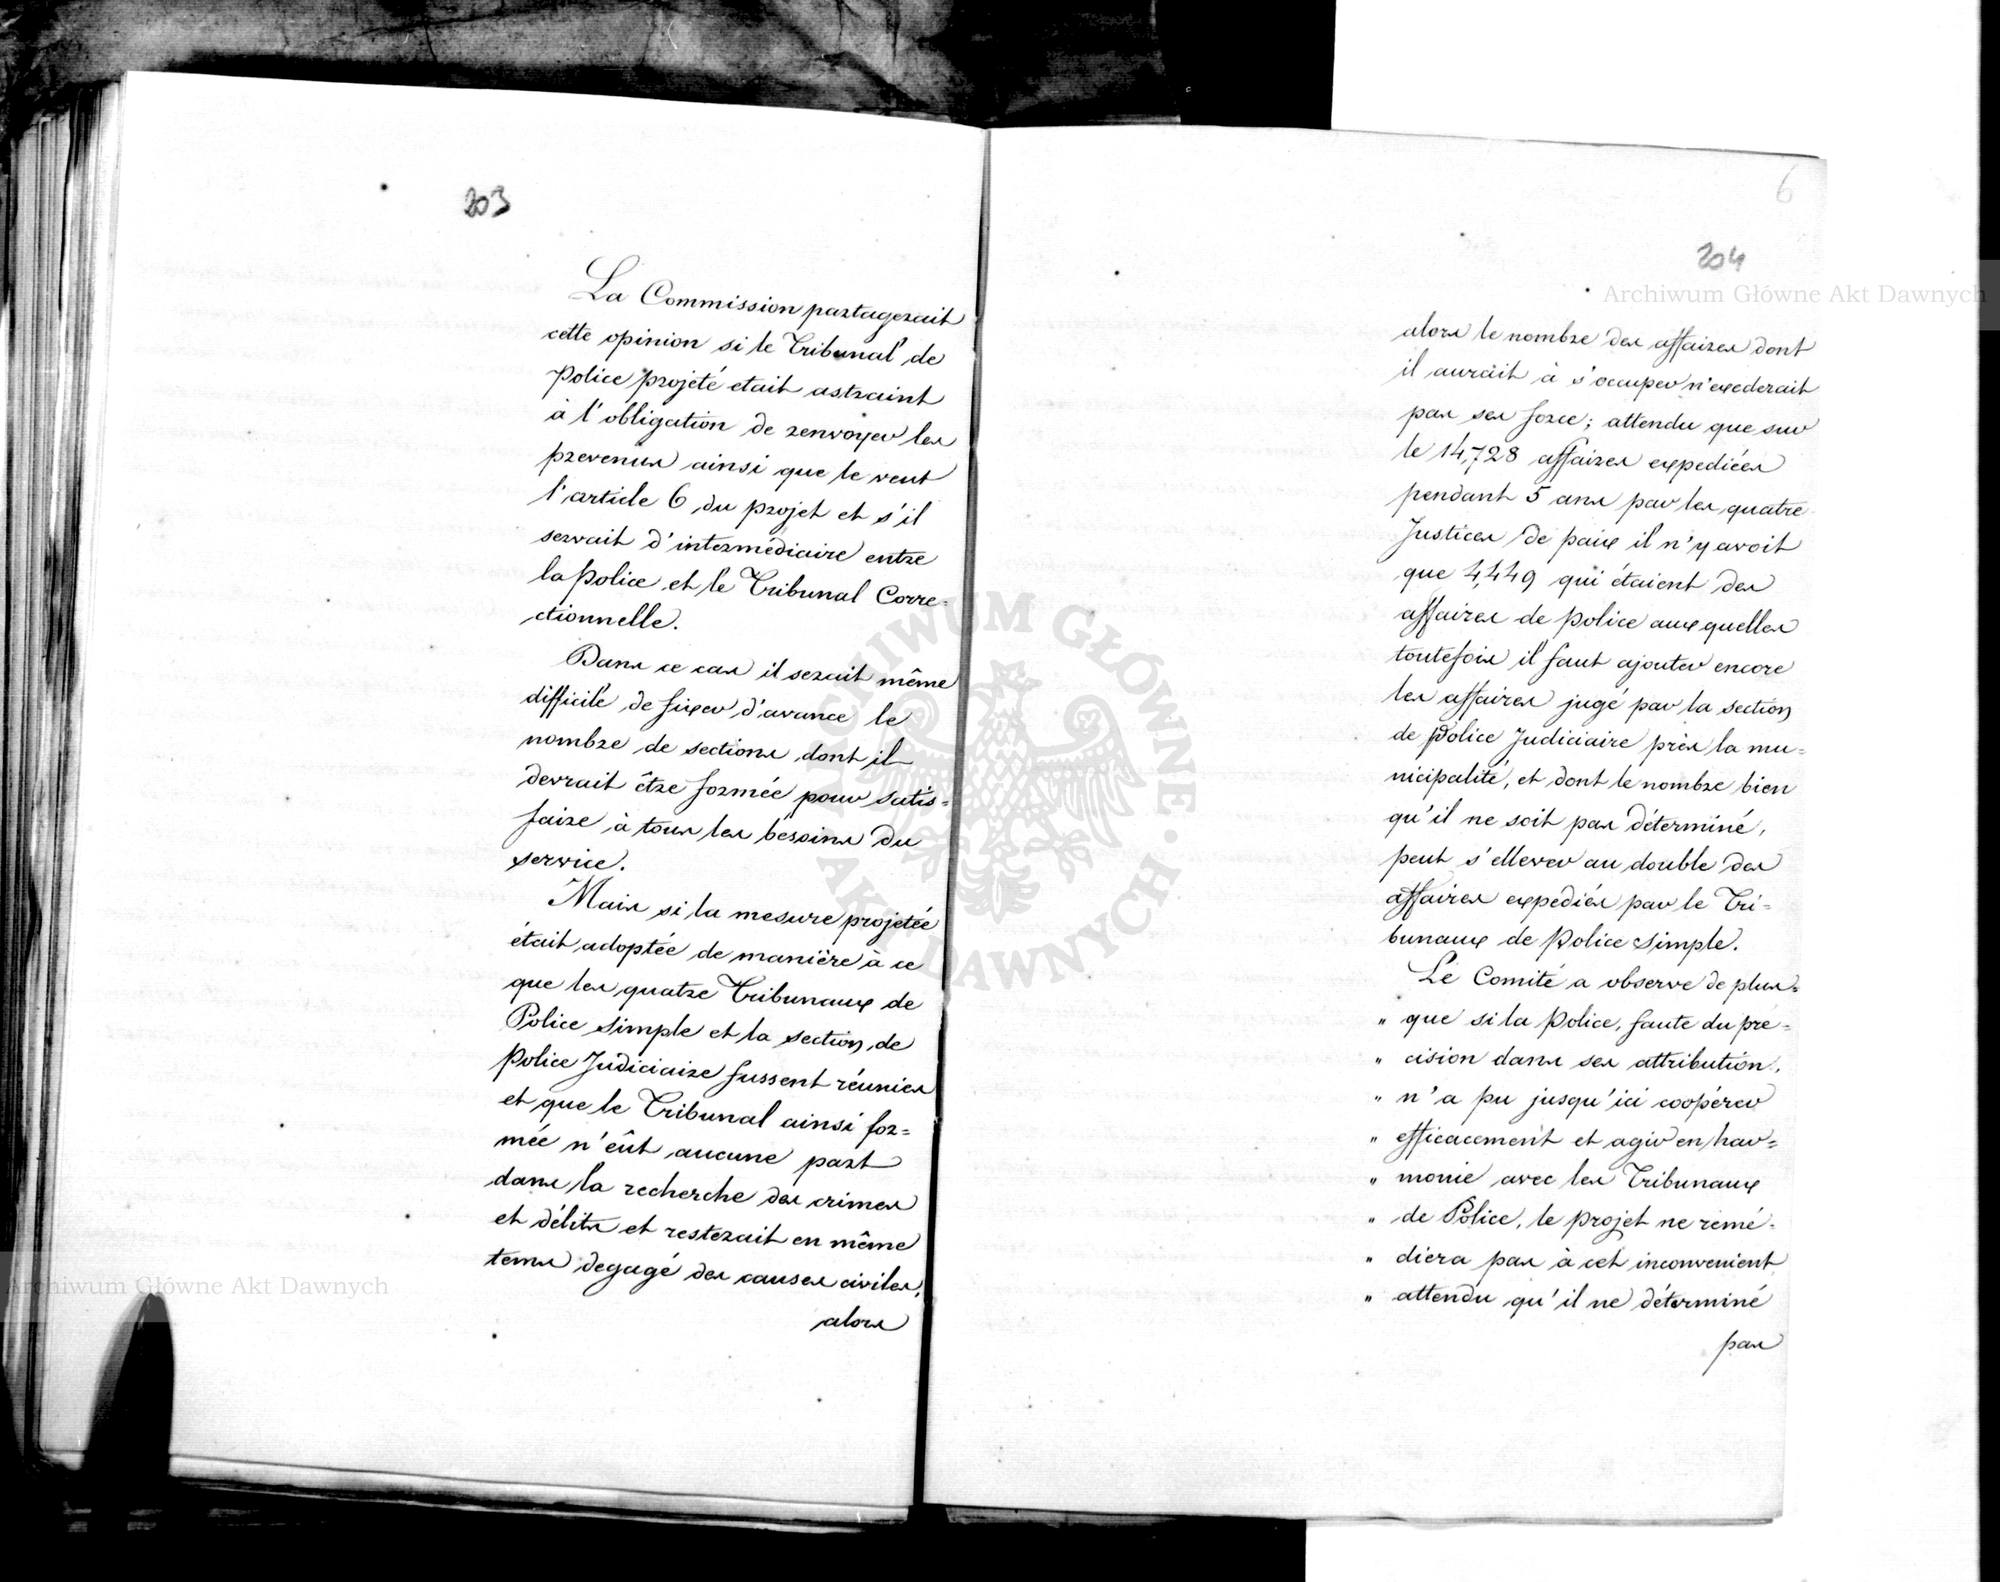 203
La Commission partagerait
cette opinion si le Tribunal de
Police projeté etait astraint
à l'obligation de renvoyer les
prevenus ainsi que le veut
l'article 6 du projet et s'il
servait d'intermédiaire entre
la Police et le Tribunal Corre=
ctionnelle.
Dans ce cas il serait même
difficile de fixer d'avance le
nombre de sections dont il
devrait être formée pour satis=
faire à tous les besoins du
service.
Mais si la mesure projetée
était adoptée de manière à ce
que les quatre Tribunaux de
Police simple et la section de
Police Judiciaire fussent réunies
et que le Tribunal ainsi for=
mée n'eût aucune part
dans la recherche des crimes
et délits et resterait en même
tems degagé des causes civiles,
alors
6
204
alors le nombre des affaires dont
il aurait à s'occuper n'excederait
pas ses force; attendu que sur
le 14,728 affaires expediées
pendant 5 ans par les quatre
Justices de paix il n'y avoit
que 4,449 qui étaient des
affaires de police aux quelles
toutefois il faut ajouter encore
les affaires jugé par la section
de Police Judiciaire près la mu=
nicipalité, et dont le nombre bien
qu'il ne soit pas déterminé,
peut s'ellever au double des
affaires expediés par le Tri=
bunaux de Police simple.
Le Comité a observe de plus=
" que si la Police, faute du pre=
" cision dans ses attribution,
" n'a pu jusqu'ici coopérer
" efficacement et agir en har=
" monie avec les Tribunaux
" de Police, le projet ne remé=
" diera pas à cet inconvenient
" attendu qu'il ne déterminé
pas
Archiwum Główne Akt Dawnych
Archiwum Główne Akt Dawnych
ARCHIWUM GŁÓWNE · AKT DAWNYCH ·